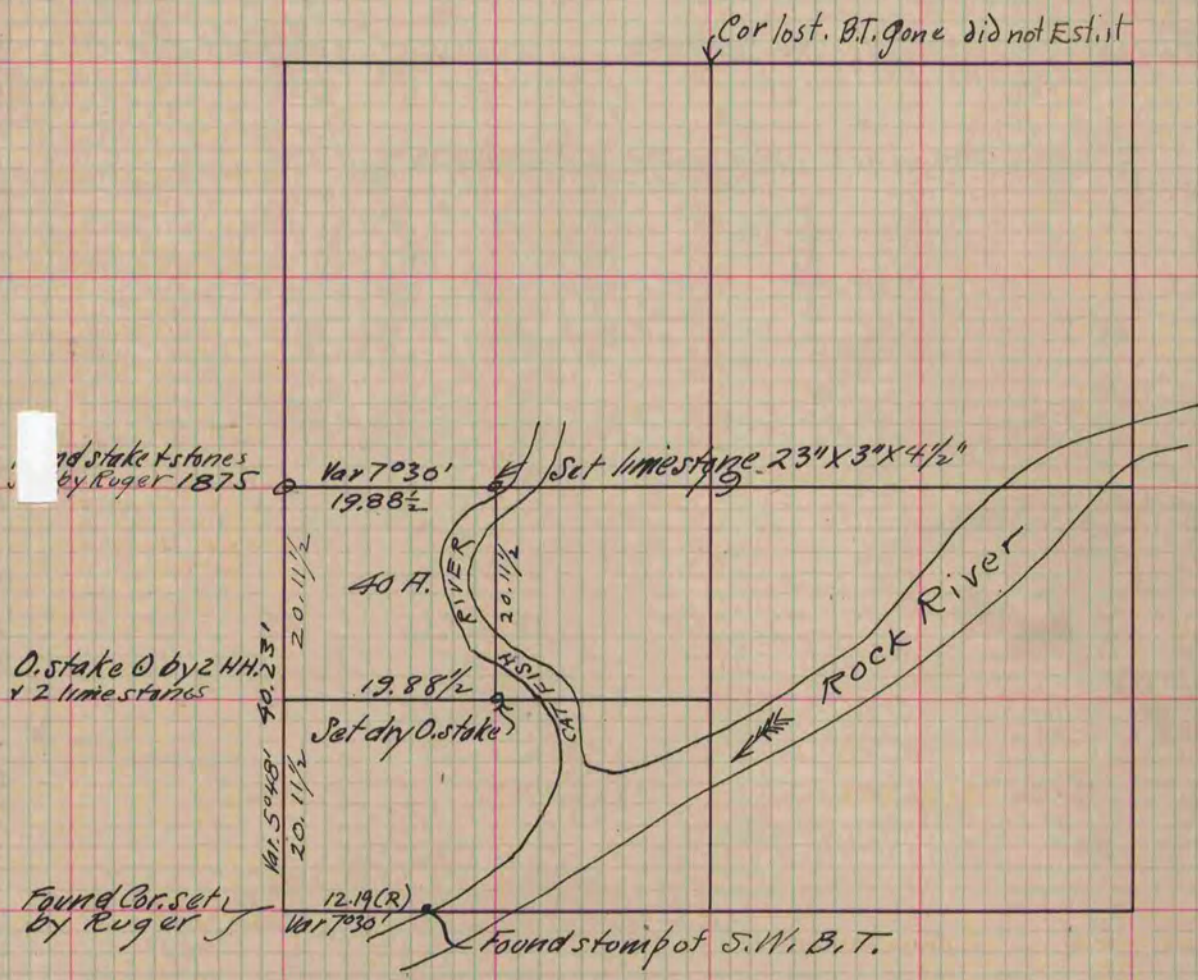 Cor lost. B.T. gone did not Est. it
stake & stones
by Ruger 1875
Var 7°30'
19.88½
Set limestone 23"X3"X4½"
9
20.11½
40 A.
RIVER
20.11½
Rock River
O. stake ⊙ by 2 HH.
& 2 limestones
40.23'
19.88½
CAT FISH
Set dry O. stake
Var. 5°48'
20.11½
Found Cor. set
by Ruger
12.19(R)
Var 7°30'
Found stump of S.W. B.T.